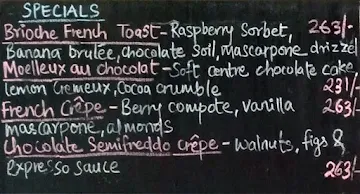 SPECIALS
Brioche French Toast - Raspberry Sorbet, 263/-
Banana brulée, chocolate soil, mascarpone drizzel
Moelleux au chocolat - Soft centre chocolate cake
lemon Cremeux, Cocoa crumble 231/-
French Crêpe - Berry compote, vanilla 263/-
mascarpone, almonds
Chocolate Semifreddo crêpe - walnuts, figs &
expresso sauce 263/-